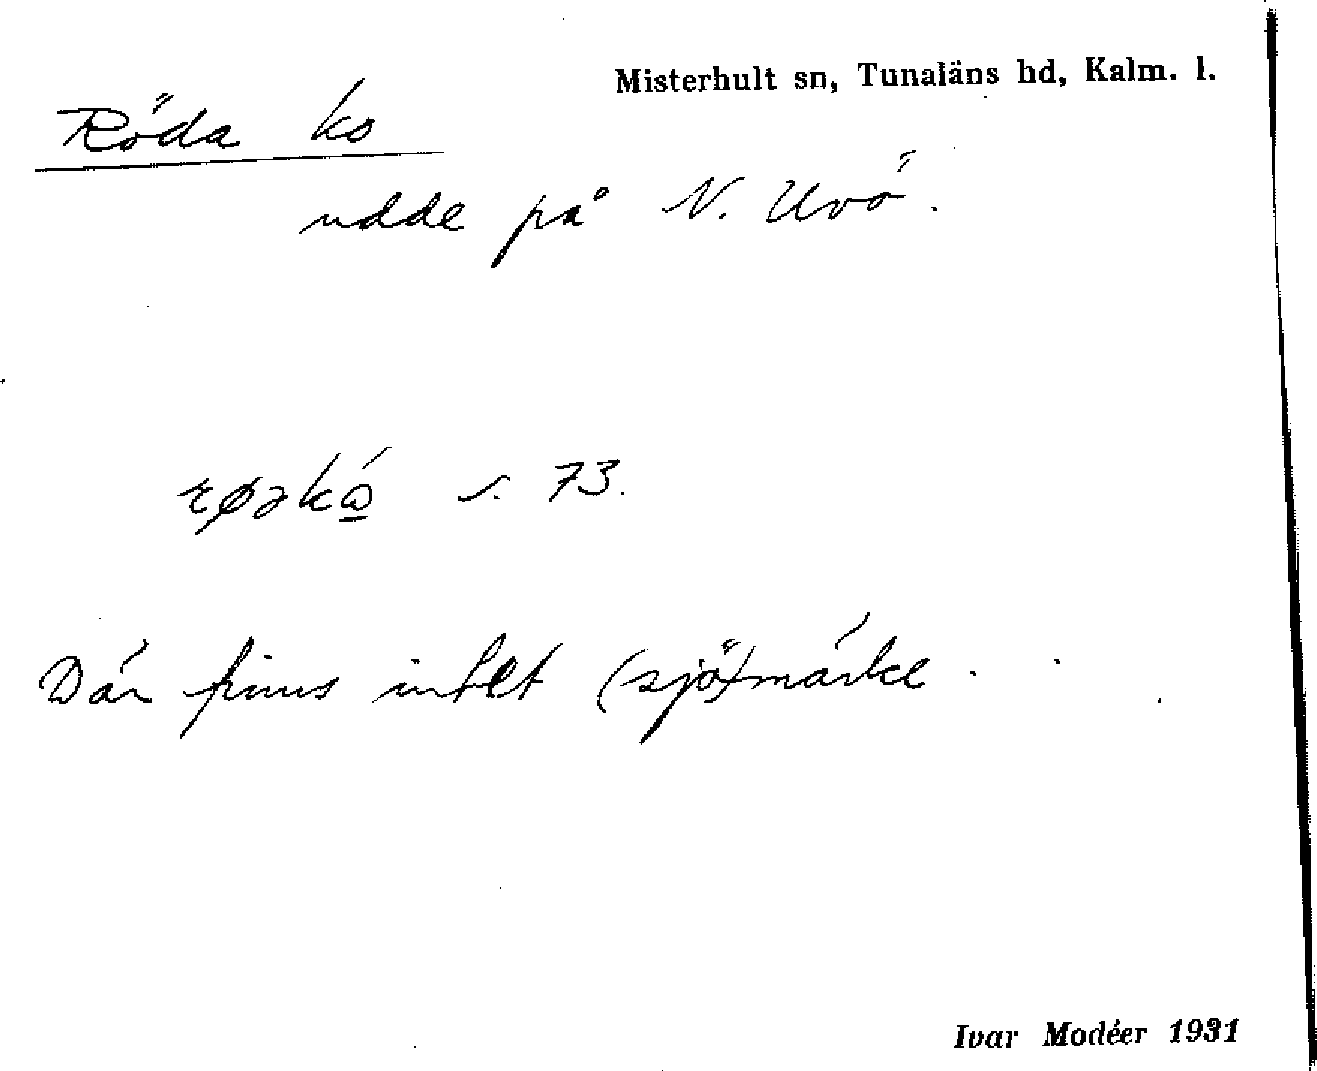 Misterhult sn, Tunaläns hd, Kalm. l.
Röda ko
udde på N. Uvö.
s. 73.
Där finns intet (sjö)märke.
Ivar Modéer 1931